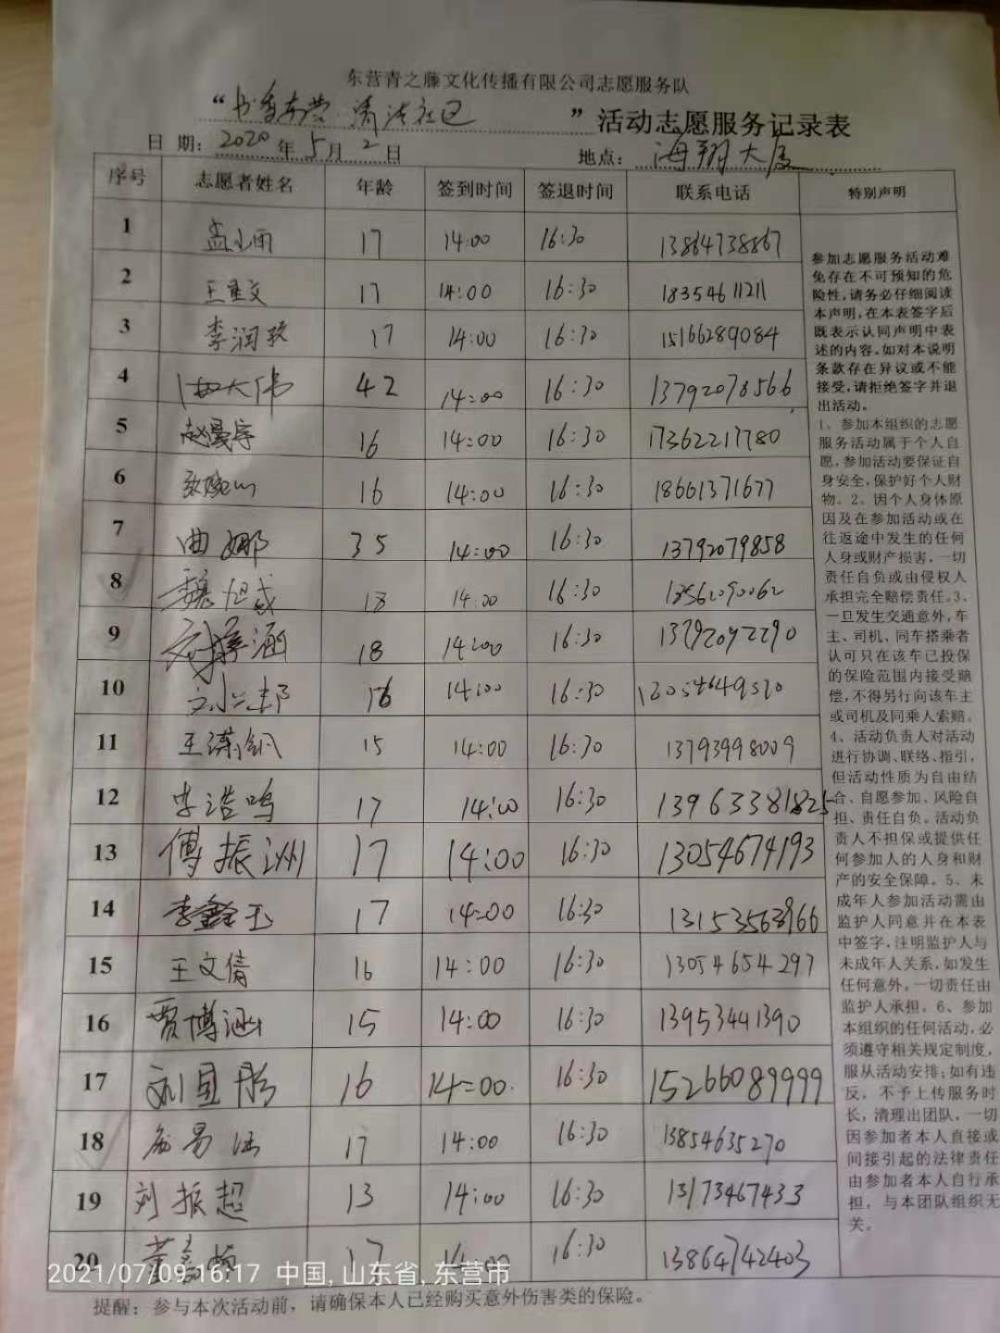 东营青之藤文化传播有限公司志愿服务队
“书香东营·清洁社区”活动志愿服务记录表
日期：2020年5月2日 地点：海翔大厦
序号 志愿者姓名 年龄 签到时间 签退时间 联系电话 特别声明
1 孟小雨 17 14:00 16:30 13864738867
2 王重文 17 14:00 16:30 18354611211
3 李润玖 17 14:00 16:30 15166289084
4 大伟 42 14:00 16:30 13792078566
5 赵曼宇 16 14:00 16:30 17362217780
6 16 14:00 16:30 18661371677
7 曲娜 35 14:00 16:30 13792079858
8 魏旭成 18 14:00 16:30 13562090062
9 涵 18 14:00 16:30 13792092290
10 刘兰邦 16 14:00 16:30
11 王潇钏 15 14:00 16:30 13793998009
12 李浩鸣 17 14:00 16:30 13963381825
13 傅振洲 17 14:00 16:30 13054674193
14 李鑫玉 17 14:00 16:30 13153563966
15 王文倩 16 14:00 16:30 13054654297
16 贾博涵 15 14:00 16:30 13953441390
17 刘昱彤 16 14:00 16:30 15266089999
18 易 17 14:00 16:30 13854635270
19 刘振超 13 14:00 16:30 13173467433
20 董 17 14:00 16:30 13864742403
参加志愿服务活动难
免存在不可预知的危
险性，请务必仔细阅读
本声明，在本表签字后
既表示认同声明中表
述的内容。如对本说明
条款存在异议或不能
接受，请拒绝签字并退
出活动。
1、参加本组织的志愿
服务活动属于个人自
愿，参加活动要保证自
身安全，保护好个人财
物。2、因个人身体原
因及在参加活动或在
往返途中发生的任何
人身或财产损害，一切
责任自负或由侵权人
承担完全赔偿责任。3、
一旦发生交通意外，车
主、司机、同车搭乘者
认可只在该车已投保
的保险范围内接受赔
偿，不得另行向该车主
或司机及同乘人索赔。
4、活动负责人对活动
进行协调、联络、指引，
但活动性质为自由结
合、自愿参加、风险自
担、责任自负。活动负
责人不担保或提供任
何参加人的人身和财
产的安全保障。5、未
成年人参加活动需由
监护人同意并在本表
中签字，注明监护人与
未成年人关系，如发生
任何意外，一切责任由
监护人承担。6、参加
本组织的任何活动，必
须遵守相关规定制度，
服从活动安排；如有违
反，不予上传服务时
长，清理出团队，一切
因参加者本人直接或
间接引起的法律责任
由参加者本人自行承
担，与本团队组织无
关。
2021/07/09 16:17 中国, 山东省, 东营市
提醒：参与本次活动前，请确保本人已经购买意外伤害类的保险。